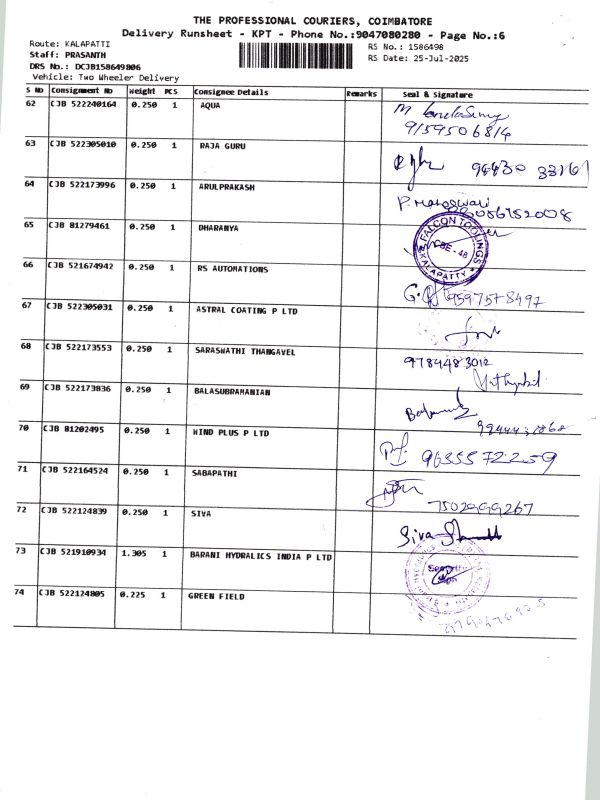 THE PROFESSIONAL COURIERS, COIMBATORE
Delivery Runsheet - KPT - Phone No.:9047080280 - Page No.:6
Route: KALAPATTI RS No.: 1586498
Staff: PRASANTH RS Date: 25-Jul-2025
DRS No.: DCJB158649806
Vehicle: Two Wheeler Delivery
S No Consignment No Weight PCS Consignee Details Remarks Seal & Signature
62 CJB 522240164 0.250 1 AQUA
9159506814
63 CJB 522305010 0.250 1 RAJA GURU
94430 33161
64 CJB 522173996 0.250 1 ARULPRAKASH
P. Maheswari
65 CJB 81279461 0.250 1 DHARANYA
FALCON TOOLINGS CBE - 48 KALAPATTY
66 CJB 521674942 0.250 1 RS AUTOMATIONS
9597578497
67 CJB 522305031 0.250 1 ASTRAL COATING P LTD
68 CJB 522173553 0.250 1 SARASWATHI THANGAVEL
9784483012
69 CJB 522173836 0.250 1 BALASUBRAMANIAN
70 CJB 81202495 0.250 1 WIND PLUS P LTD
9655572259
71 CJB 522164524 0.250 1 SABAPATHI
7502999267
72 CJB 522124839 0.250 1 SIVA
Siva
73 CJB 521910934 1.305 1 BARANI HYDRALICS INDIA P LTD
74 CJB 522124805 0.225 1 GREEN FIELD